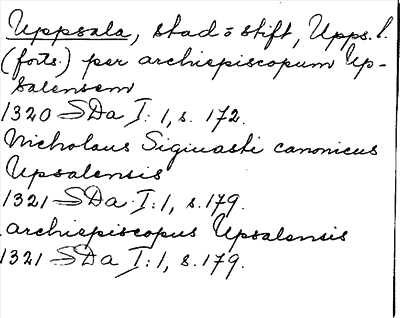 Uppsala, stad o stift, Upps. l.
(forts.) per archiepiscopum Up-
salensem
1320 SDa I: 1, s. 172.
Nicholaus Sigiuasti canonicus
Upsalensis
1321 SDa I: 1, s. 179.
archiepiscopus Upsalensis
1321 SDa I: 1, s. 179.